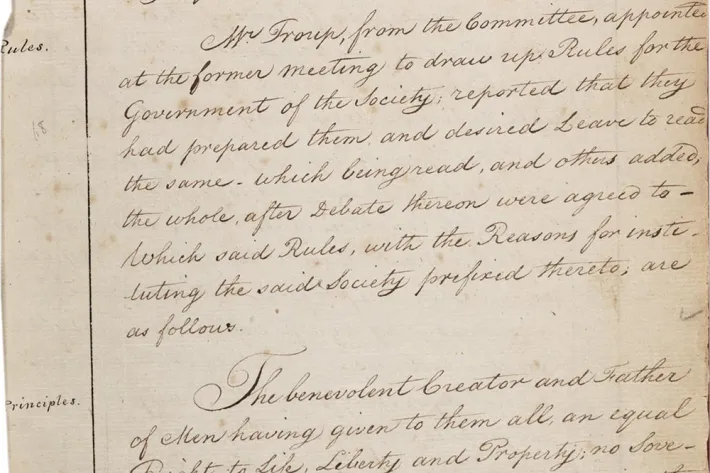 Rules.
Mr Troup, from the Committee, appointed
at the former meeting to draw up Rules for the
Government of the Society; reported that they
had prepared them and desired Leave to read
the same - which being read, and others added,
the whole, after Debate thereon were agreed to -
Which said Rules, with the Reasons for insti-
tuting the said Society prefixed thereto, are
as follows.
Principles.
The benevolent Creator and Father
of Men having given to them all, an equal
Right to Life, Liberty and Property; no Sove-